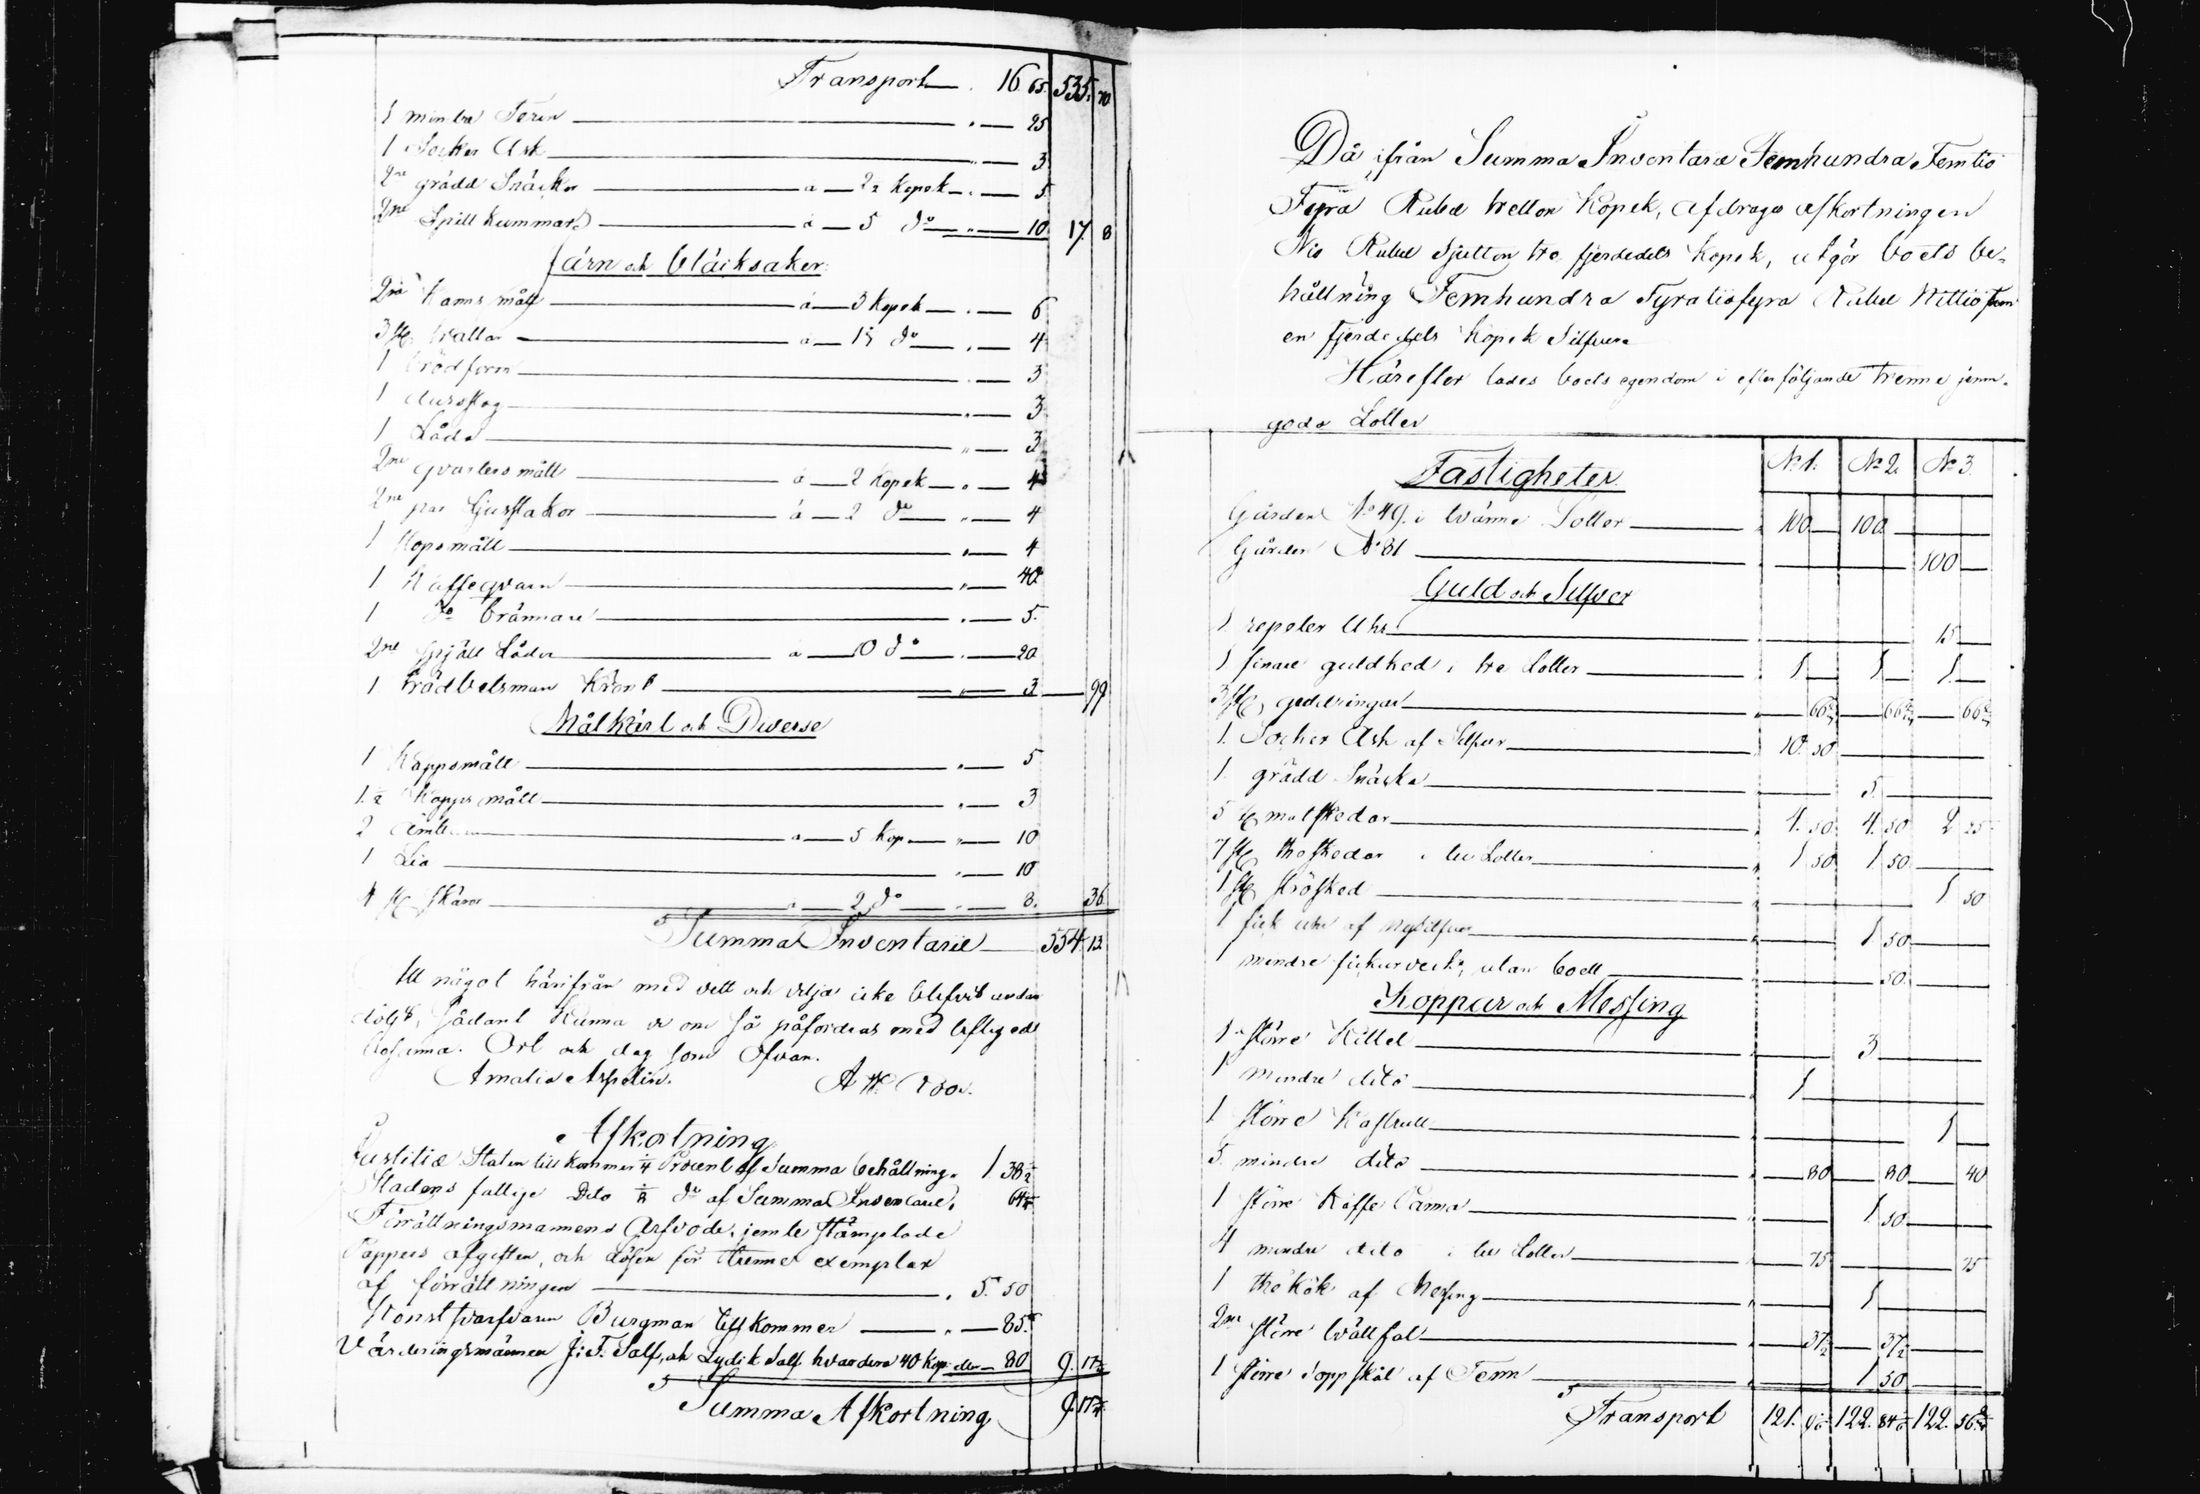 Transport 16. 65. 535. 70
1 mindre Terin " 25
1 Socker Ask " 3
2ne grädd Snäckor à 2½ Kopek " 5
2ne Spill Kummar à 5 do " 10 17 8
Järn och bläcksaker.
2ne Kanns mått à 3 Kopek " 6
3 st. trattar à 1⅓ do " 4
1 brödform " 3
1 durslag " 3
1 Låda " 3
2ne qvarters mått à 2 Kopek " 4
2ne par ljusstakar à 2 do " 4
1 Hopsmått " 4
1 Kaffeqvarn " 40
1 do brännare " 5.
2ne Lådor à 10 do " 20
1 " 3 99
Målkärl och Diverse
1 Kappsmått " 5
1. ½ Kapps mått " 3
2 à 5 Kop " 10
1 Lia " 10
4 st. skäror à 2 do " 8. 36
Summa Inventarie 554. 13
Att något härifrån med vett och vilja icke blifvit undan
dölgt, sådant Kunna vi om så påfordras med laflig ed
besanna. Ort och dag som Ofvan.
Amalia Aspelin.
Afkortning
Justitiæ Staten tillkommer ¼ Procent af Summa behållning " 1 38½
Stadens fattige Dito ⅛ do af Summa Inventarie " 69¼
Förrättningsmannens Arfvode, jemte stämplade
Pappers afgiften, och Lösen för trenne exemplar
af förrättningen " 5. 50
Konstsvarfvaren Burgman tillkommer " 85.
Värderingsmännen J: F. Salf, och Lydik Salf hvardera 40 Kop: eller 80 9. 17¾
Summa Afkortning 9. 17¾
Då ifrån Summa Inventarie Femhundra Femtio
Fyra Rubel tretton Kopek, afdrages afkortningen
Nio Rubel sjutton tre fjerdedels Kopek, utgör boets be-
hållning Femhundra Fyratiofyra Rubel Nittiofem
en fjerdedels Kopek Silfver.
Härefter lades boets egendom i efterföljande trenne jemn-
goda Lotter
No 1. No 2. No 3.
Fastigheter
Gården No 49. i tvänne Lotter " 100 100
Gården No 81 100
Guld och Silfver
1 repeter Uhr 15
1 finare guldked i tre Lotter 1 1 1
3 st. guldringar " 66⅔ 66⅔ 66⅔
1. Socker Ask af Silfver 10. 50
1. grädd Snäcka 5.
5 st matskedar 4. 50. 4. 50 2 25
7 st theskedar i två Lotter 1 50 1 50
1 st strösked 1 50
1 fick uhr af nysilfver 1 50
1 mindre fickurverk, utan boett 50.
Koppar och Messing
1 större Kittel 3
1 mindre dito 1
1 större Kastrull 1
5. mindre dito 80 80 40
1 större Kaffe Panna 1 50
4 mindre dito i två Lotter 75 75
1 thekök af Messing 1
2ne större 37½ 37½
1 större soppskål af Tenn 1 50
Transport 121. 122. 84 122. 56